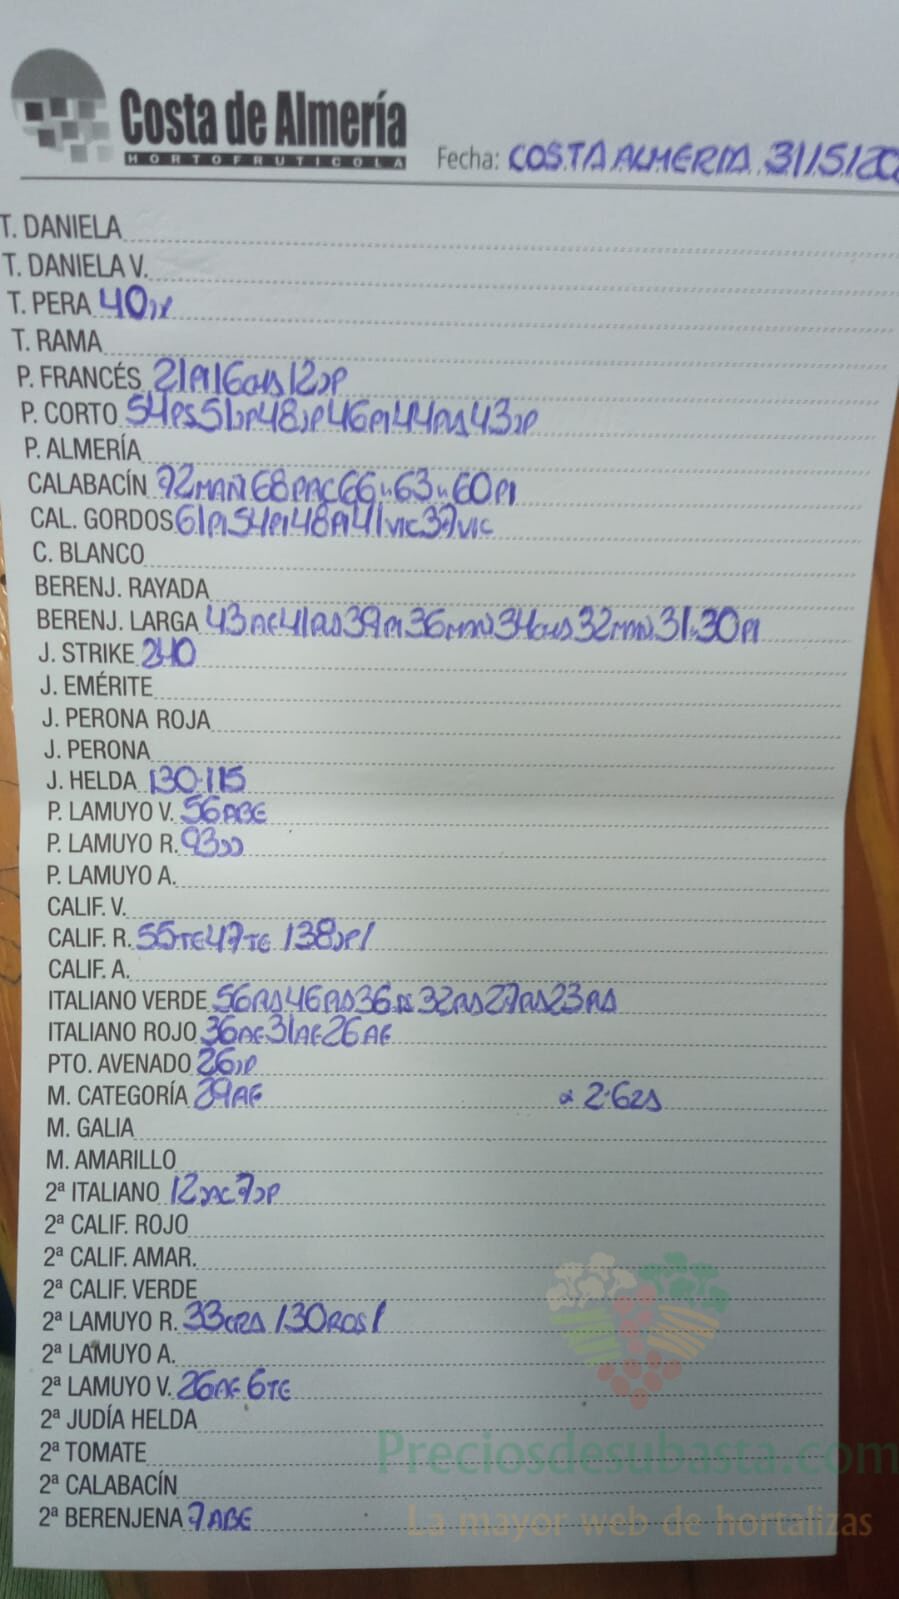 Costa de Almería
HORTOFRUTICOLA
Fecha: COSTA ALMERIA 31/5/20
T. DANIELA
T. DANIELA V.
T. PERA 40
T. RAMA
P. FRANCÉS 21PI 16 12JP
P. CORTO 54PS 51JP 48JP 46PI 44 43JP
P. ALMERÍA
CALABACÍN 72MAÑ 68PAC 66" 63" 60PI
CAL. GORDOS 61PI 54PI 48PI 41VIC 37VIC
C. BLANCO
BERENJ. RAYADA
BERENJ. LARGA 43AE 41 39PI 36 34 32MAÑ 31 30PI
J. STRIKE 240
J. EMÉRITE
J. PERONA ROJA
J. PERONA
J. HELDA 130-115
P. LAMUYO V. 56ABE
P. LAMUYO R. 93JJ
P. LAMUYO A.
CALIF. V.
CALIF. R. 55TE 47TE /38JP/
CALIF. A.
ITALIANO VERDE 56 46 36 32 27 23
ITALIANO ROJO 36AE 31AE 26AE
PTO. AVENADO 26JP
M. CATEGORÍA 29AE
M. GALIA
M. AMARILLO
2ª ITALIANO 12 7JP
2ª CALIF. ROJO
2ª CALIF. AMAR.
2ª CALIF. VERDE
2ª LAMUYO R. 33 /30ROS/
2ª LAMUYO A.
2ª LAMUYO V. 26AE 6TE
2ª JUDÍA HELDA
2ª TOMATE
2ª CALABACÍN
2ª BERENJENA 7ABE
Preciosdesubasta.com
La mayor web de hortalizas